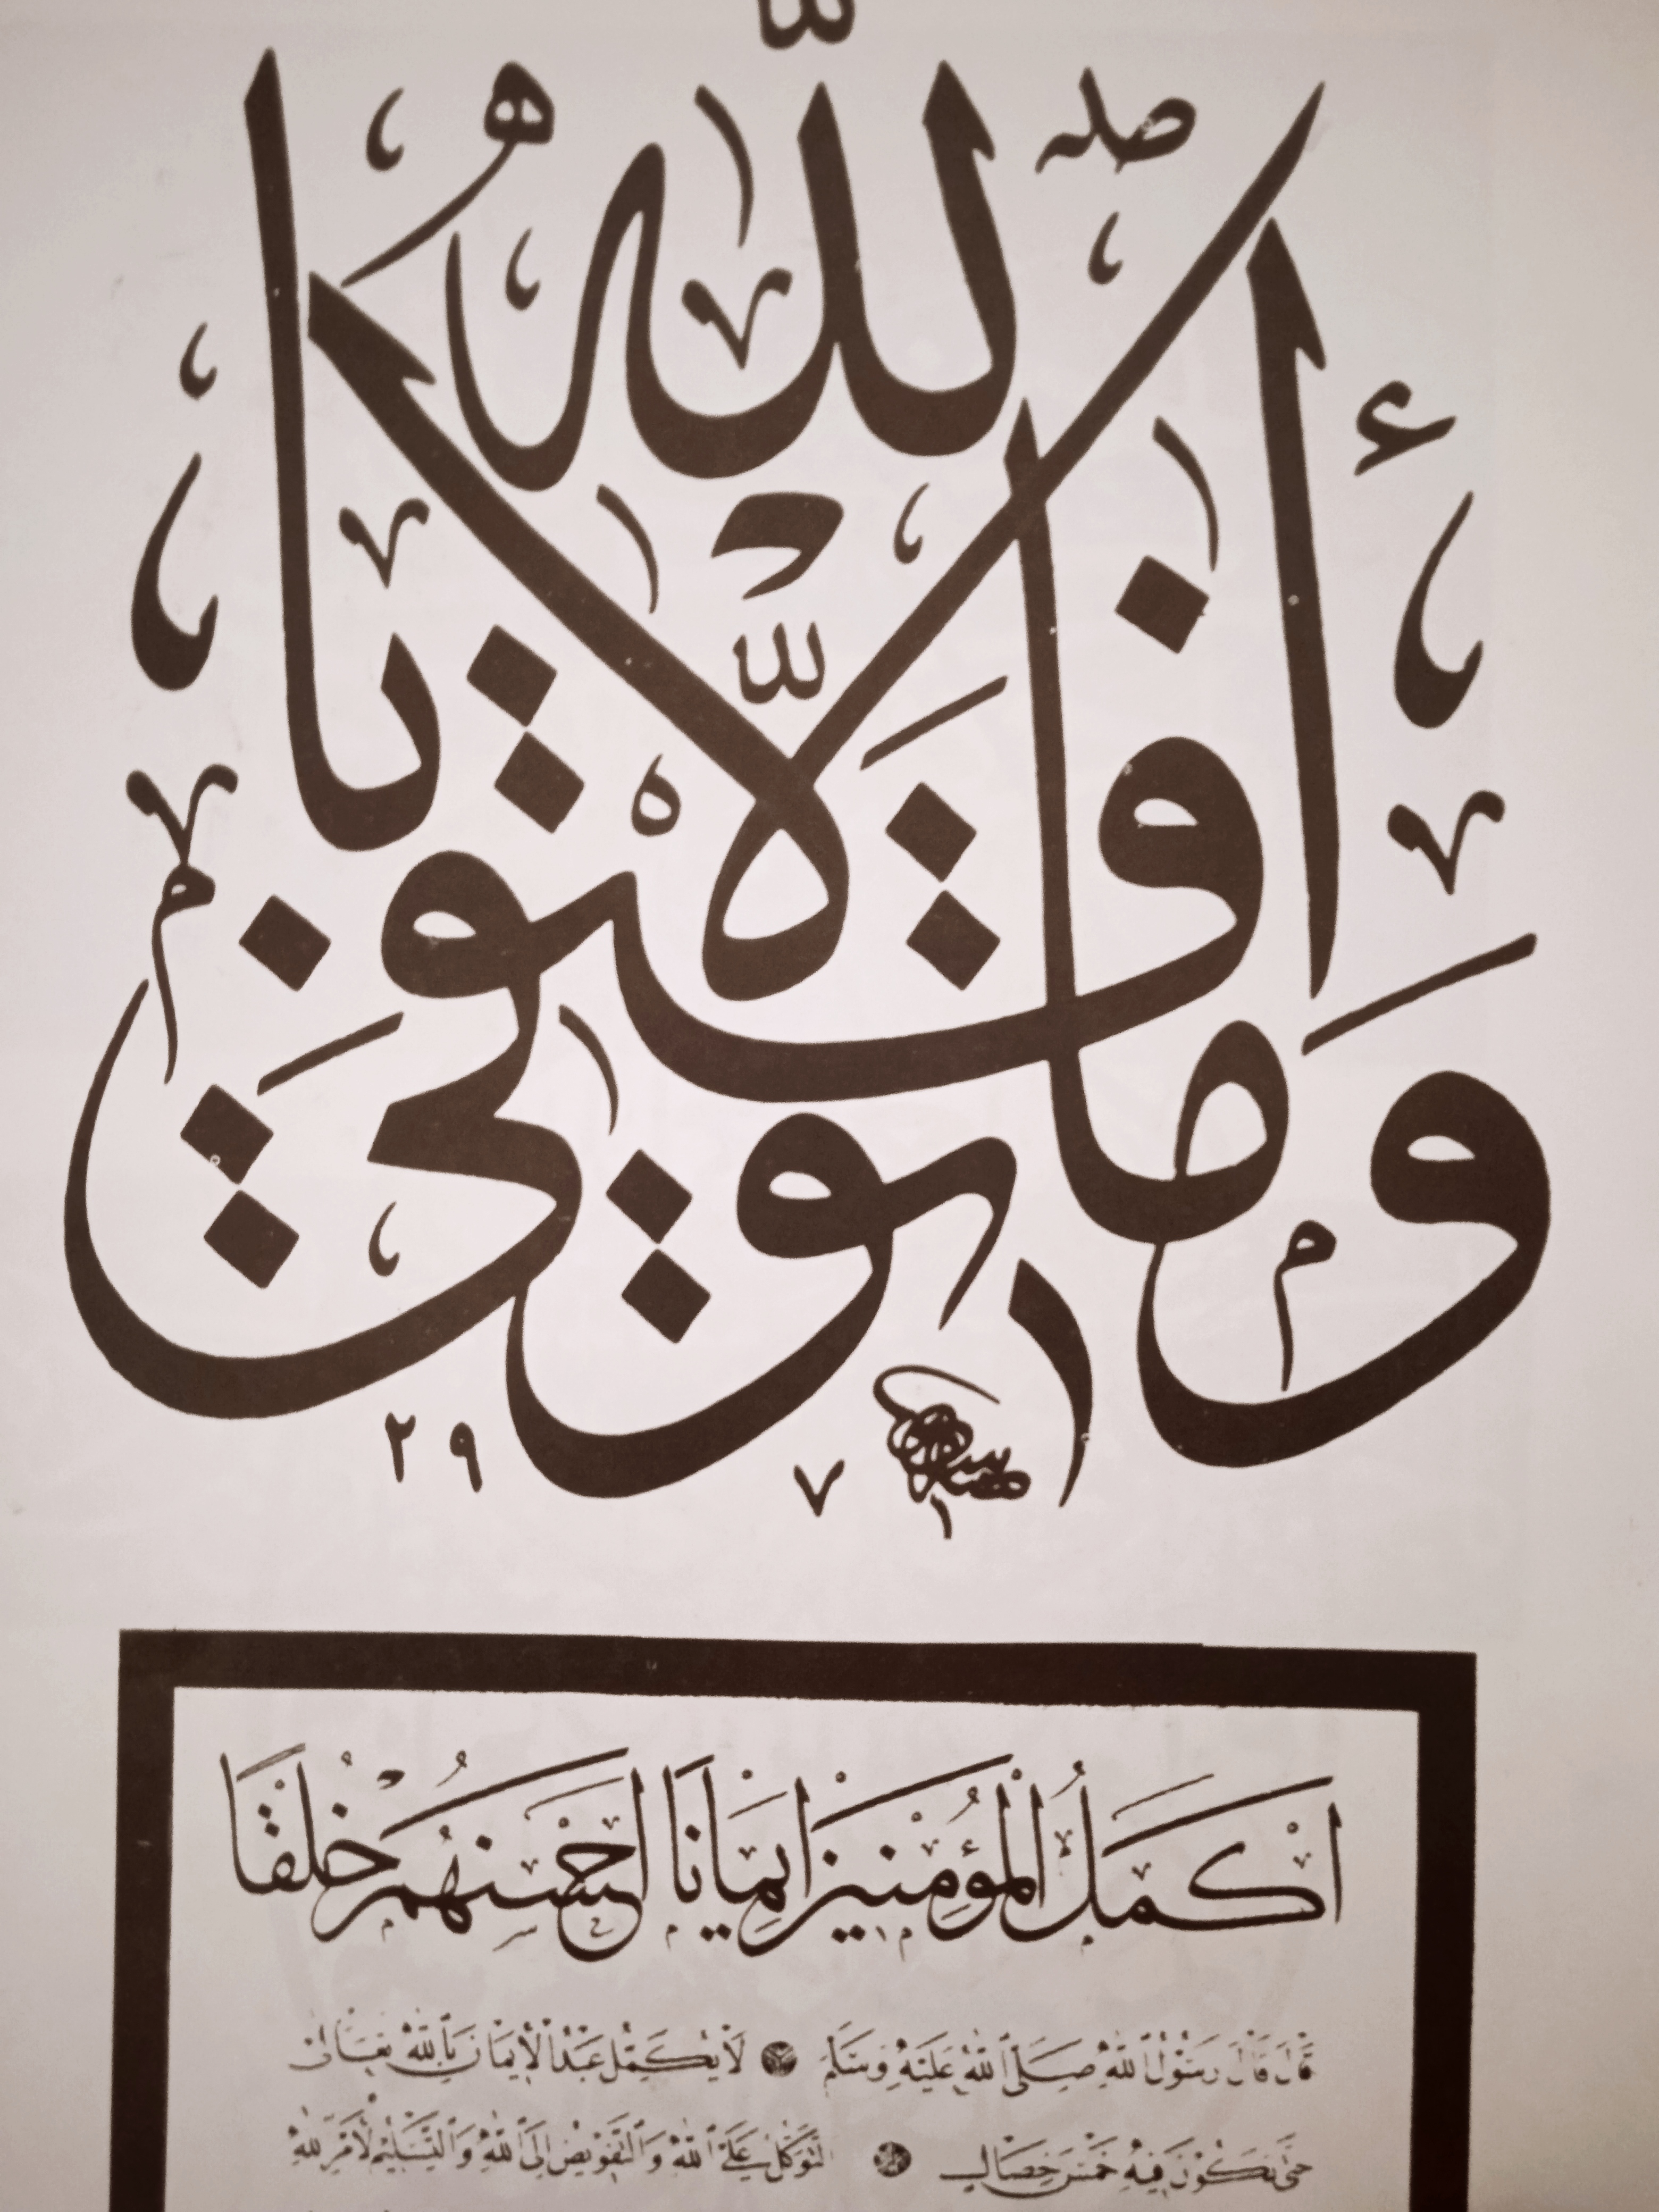 وما توفيقي إلا بالله
اَكْمَلُ الْمُؤْمِنِيْنَ اِيْمَانًا اَحْسَنُهُمْ خُلُقًا
قَالَ قَالَ رَسُوْلُ اللهِ صَلَّى اللهُ عَلَيْهِ وَسَلَّمَ لَا يُكَمِّلُ عَبْدٌ الْإِيْمَانَ بِاللهِ تَعَالٰى
حَتّٰى يَكُوْنَ فِيْهِ خَمْسُ خِصَالٍ التَّوَكُّلُ عَلَى اللهِ وَالتَّفْوِيْضُ اِلَى اللهِ وَالتَّسْلِيْمُ لِاَمْرِ اللهِ